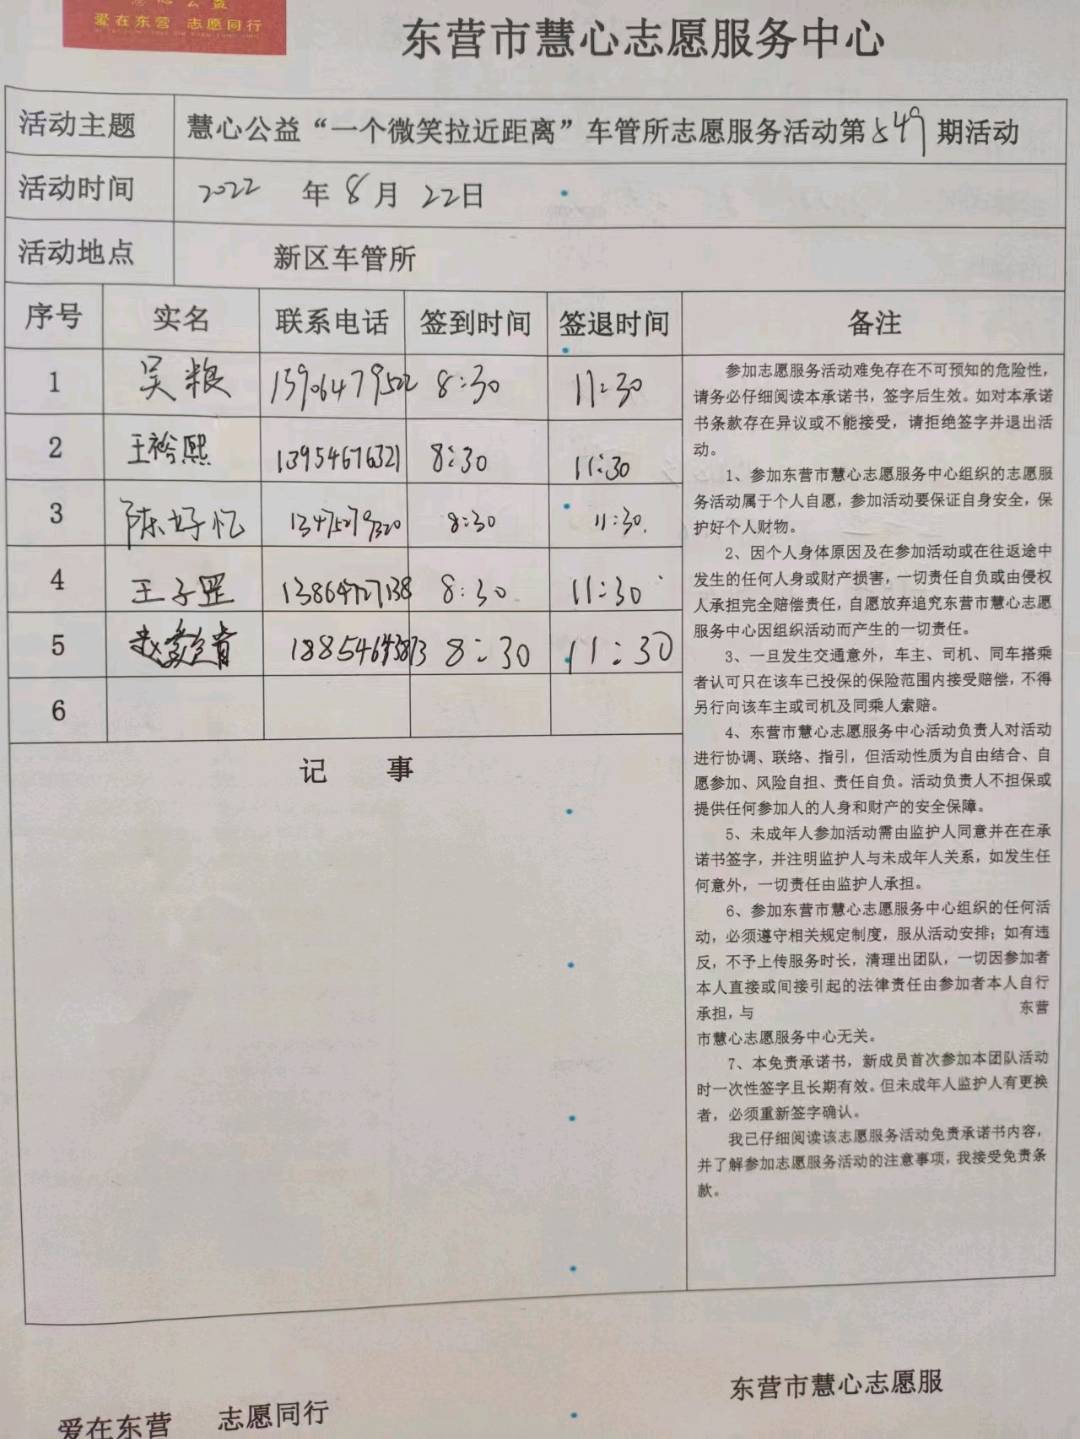 慧心公益
爱在东营 志愿同行
东营市慧心志愿服务中心
活动主题 慧心公益“一个微笑拉近距离”车管所志愿服务活动第549期活动
活动时间 2022 年 8 月 22日
活动地点 新区车管所
序号 实名 联系电话 签到时间 签退时间 备注
1 吴粮 13906479522 8:30 11:30
2 王裕熙 13954676321 8:30 11:30
3 陈好忆 13475279320 8:30 11:30
4 王子罡 13864727138 8:30 11:30
5 8:30 11:30
6
记 事
参加志愿服务活动难免存在不可预知的危险性，
请务必仔细阅读本承诺书，签字后生效。如对本承诺
书条款存在异议或不能接受，请拒绝签字并退出活
动。
1、参加东营市慧心志愿服务中心组织的志愿服
务活动属于个人自愿，参加活动要保证自身安全，保
护好个人财物。
2、因个人身体原因及在参加活动或在往返途中
发生的任何人身或财产损害，一切责任自负或由侵权
人承担完全赔偿责任，自愿放弃追究东营市慧心志愿
服务中心因组织活动而产生的一切责任。
3、一旦发生交通意外，车主、司机、同车搭乘
者认可只在该车已投保的保险范围内接受赔偿，不得
另行向该车主或司机及同乘人索赔。
4、东营市慧心志愿服务中心活动负责人对活动
进行协调、联络、指引，但活动性质为自由结合、自
愿参加、风险自担、责任自负。活动负责人不担保或
提供任何参加人的人身和财产的安全保障。
5、未成年人参加活动需由监护人同意并在在承
诺书签字，并注明监护人与未成年人关系，如发生任
何意外，一切责任由监护人承担。
6、参加东营市慧心志愿服务中心组织的任何活
动，必须遵守相关规定制度，服从活动安排；如有违
反，不予上传服务时长，清理出团队，一切因参加者
本人直接或间接引起的法律责任由参加者本人自行
承担，与 东营
市慧心志愿服务中心无关。
7、本免责承诺书，新成员首次参加本团队活动
时一次性签字且长期有效。但未成年人监护人有更换
者，必须重新签字确认。
我已仔细阅读该志愿服务活动免责承诺书内容，
并了解参加志愿服务活动的注意事项，我接受免责条
款。
东营市慧心志愿服
爱在东营 志愿同行